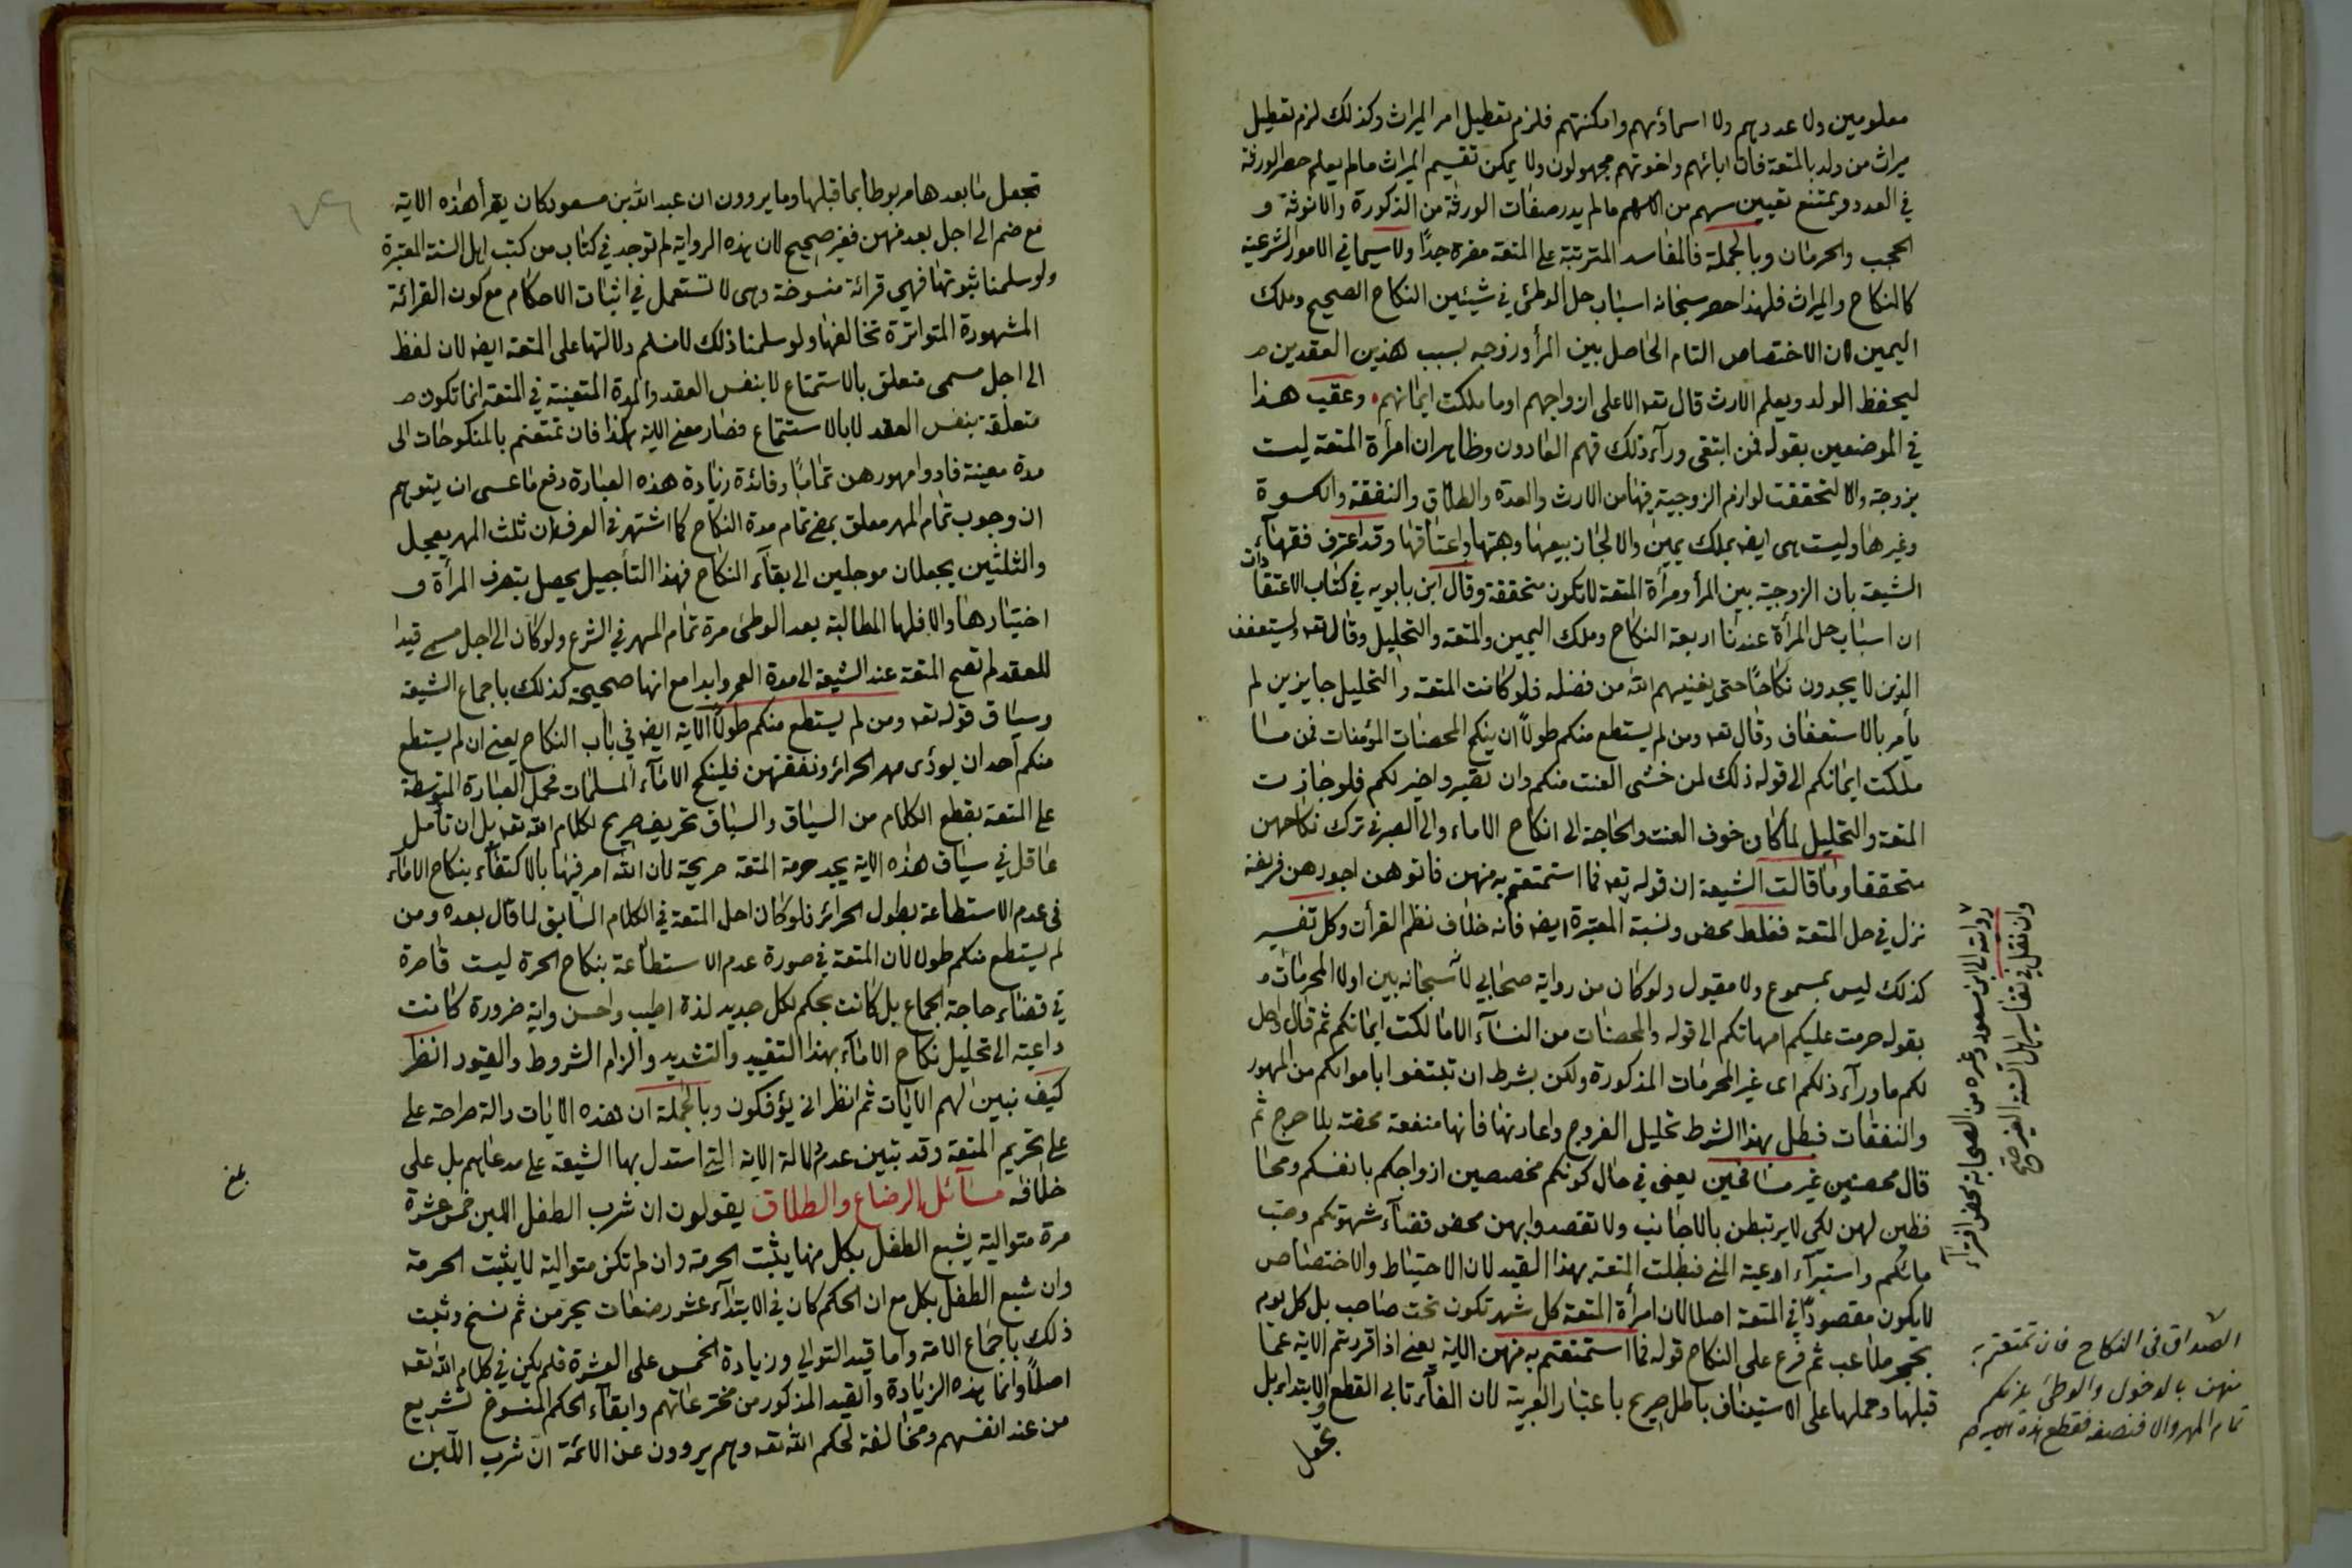 معلومين ولا عددهم ولا اسماؤهم وامكنتهم فلزم تعطيل امر الميراث وكذلك لزم تعطيل
ميراث من ولد بالمتعة فان ابائهم واخوتهم مجهولون ولا يمكن تقسيم الميراث مالم يعلم حصر الورثة
في العدد ويمتنع تعيين سهم من الاسهم مالم يدر صفات الورثة من الذكورة والانوثة و
الحجب والحرمان وبالجملة فالمفاسد المترتبة على المتعة مضرة جدًا ولا سيما في الامور الشرعية
كالنكاح والميراث فلهذا حصر سبحانه اسباب حل الوطئ في شيئين النكاح الصحيح وملك
اليمين لان الاختصاص التام الحاصل بين المرأ وزوجه بسبب هذين العقدين
ليحفظ الولد ويعلم الارث قال تعه الا على ازواجهم او ما ملكت ايمانهم وعقب هذا
في الموضعين بقوله فمن ابتغى ورآء ذلك فهم العادون وظاهر ان امرأة المتعة ليست
بزوجة والا لتحققت لوازم الزوجية فيها من الارث والعدة والطلاق والنفقة والكسوة
وغيرها وليست هى ايضه بملك يمين والا لجاز بيعها وهبتها واعتاقها وقد اعترف فقهآء
الشيعة بان الزوجية بين المرأ ومرأة المتعة لا تكون متحققة وقال ابن بابويه في كتاب الاعتقادات
ان اسباب حل المرأة عندنا اربعة النكاح وملك اليمين والمتعة والتحليل وقال تعه وليستعفف
الذين لا يجدون نكاحًا حتى يغنيهم الله من فضله فلو كانت المتعة والتحليل جايزين لم
يأمر بالاستعفاف وقال تعه ومن لم يستطع منكم طولاً ان ينكح المحصنات المؤمنات فمن مـا
ملكت ايمانكم الى قوله ذلك لمن خشى العنت منكم وان تصبروا خير لكم فلو جازت
المتعة والتحليل لما كان خوف العنت والحاجة الى انكاح الاماء والى الصبر في ترك نكاحهن
متحققا وما قالت الشيعة ان قوله تعه فما استمتعتم به منهن فاتوهن اجورهن فريضة
نزل في حل المتعة فغلط محض ونسبة المعتبرة ايضه فانه خلاف نظم القرأن وكل تفسير
كذلك ليس بمسموع ولا مقبول ولو كان من رواية صحابي لانه سبحانه بين اولا المحرمات
بقوله حرمت عليكم امهاتكم الى قوله والمحصنات من النسآء الا ما ملكت ايمانكم ثم قال واحل
لكم ما ورآء ذلكم اى غير المحرمات المذكورة ولكن بشرط ان تبتغوا باموالكم من المهور
والنفقات فبطل بهذا الشرط تحليل الفروج واعارتها فانها منفعة محضة بلا حرج ثم
قال محصنين غير مسافحين يعنى في حال كونكم مخصصين ازواجكم بانفسكم ومحا
فظين لهن لكى لا يرتبطن بالاجانب ولا تقصدوا بهن محض قضآء شهوتكم وصب
مائكم واستبرآء اوعية المني فبطلت المتعة بهذا القيد لان الاحتياط والاختصاص
لا يكون مقصودًا في المتعة اصلا لان امرأة المتعة كل شهر تكون تحت صاحب بل كل يوم
بحجر ملاعب ثم فرع على النكاح قوله فما استمتعتم به منهن الاية يعنى اذا قررتم الاية عما
قبلها وحملها على الاستيناف باطل صريح باعتبار العربية لان الفآء تابى القطع والابتداء بل
تجعل
وان نقل في تفاسير اهل السنة الغير
رواته الى ابن مسعود وغيره من الصحابة محض افترآء
الصداق في النكاح فان تمتعتم به
منهن بالدخول والوطئ يلزمكم
تمام المهر والا فنصفه فقطع هذه الاية
تجعل ما بعدها مربوطا بما قبلها وما يروون ان عبد الله بن مسعود كان يقرأ هذه الاية
مع ضم الى اجل بعد منهن فغير صحيح لان هذه الرواية لم توجد في كتاب من كتب اهل السنة المعتبرة
ولو سلمنا ثبوتها فهي قرائة منسوخة وهى لا تستعمل في اثبات الاحكام مع كون القرائة
المشهورة المتواترة تخالفها ولو سلمنا ذلك لا نسلم دلالتها على المتعة ايضه لان لفظ
الى اجل مسمى متعلق بالاستمتاع لا بنفس العقد والمدة المتعينة في المتعة انما تكون
متعلقة بنفس العقد لا بالاستمتاع فصار معنى الاية هكذا فان تمتعتم بالمنكوحات الى
مدة معينة فادوا مهورهن تمامًا وفائدة زيادة هذه العبارة دفع ما عسى ان يتوهم
ان وجوب تمام المهر معلق بمضي تمام مدة النكاح كما اشتهر في العرف ان ثلث المهر يعجل
والثلثين يجعلان موجلين الى بقآء النكاح فهذا التأجيل يحصل بتصرف المرأة و
اختيارها والا فلها المطالبة بعد الوطئ مرة تمام المهر في الشرع ولو كان الى اجل مسمى قيدا
للعقد لم تصح المتعة عند الشيعة الى مدة العمر وابدا مع انها صحيحة كذلك باجماع الشيعة
وسياق قوله تعه ومن لم يستطع منكم طولاً الآية ايضه في باب النكاح يعنى ان لم يستطع
منكم احد ان يودى مهر الحرائر ونفقتهن فلينكح الامآء المسلمات فحمل العبارة المتوسطة
على المتعة بقطع الكلام من السياق والسباق تحريف صريح لكلام الله تعه بل ان تأمل
عاقل في سياق هذه الاية يجد حرمة المتعة صريحة لان الله امر فيها بالاكتفآء بنكاح الامآء
فى عدم الاستطاعة بطول الحرائر فلو كان احل المتعة في الكلام السابق لما قال بعده ومن
لم يستطع منكم طولا لان المتعة في صورة عدم الاستطاعة بنكاح الحرة ليست قاصرة
في قضاء حاجة الجماع بل كانت بحكم لكل جديد لذة اطيب واحسن واية ضرورة كانت
داعية الى تحليل نكاح الامآء بهذا التقييد والتشديد والزام الشروط والقيود انظر
كيف نبين لهم الايات ثم انظر انى يؤفكون وبالجملة ان هذه الايات دالة صراحة على
على تحريم المتعة وقد تبين عدم دلالة الاية التي استدل بها الشيعة على مدعاهم بل على
خلافه مسآئل الرضاع والطلاق يقولون ان شرب الطفل اللبن خمس عشرة
مرة متوالية يشبع الطفل بكل منها يثبت الحرمة وان لم تكن متوالية لا يثبت الحرمة
وان شبع الطفل بكل مع ان الحكم كان في الابتدآء عشر رضعات يحرمن ثم نسخ وثبت
ذلك باجماع الامة واما قيد التوالي وزيادة الخمس على العشرة فلم يكن في كلام الله تعه
اصلاً وانما هذه الزيادة والقيد المذكور من مخترعاتهم وابقاء الحكم المنسوخ تشريع
من عند انفسهم ومخالفة لحكم الله تعه وهم يروون عن الائمة ان شرب اللبن